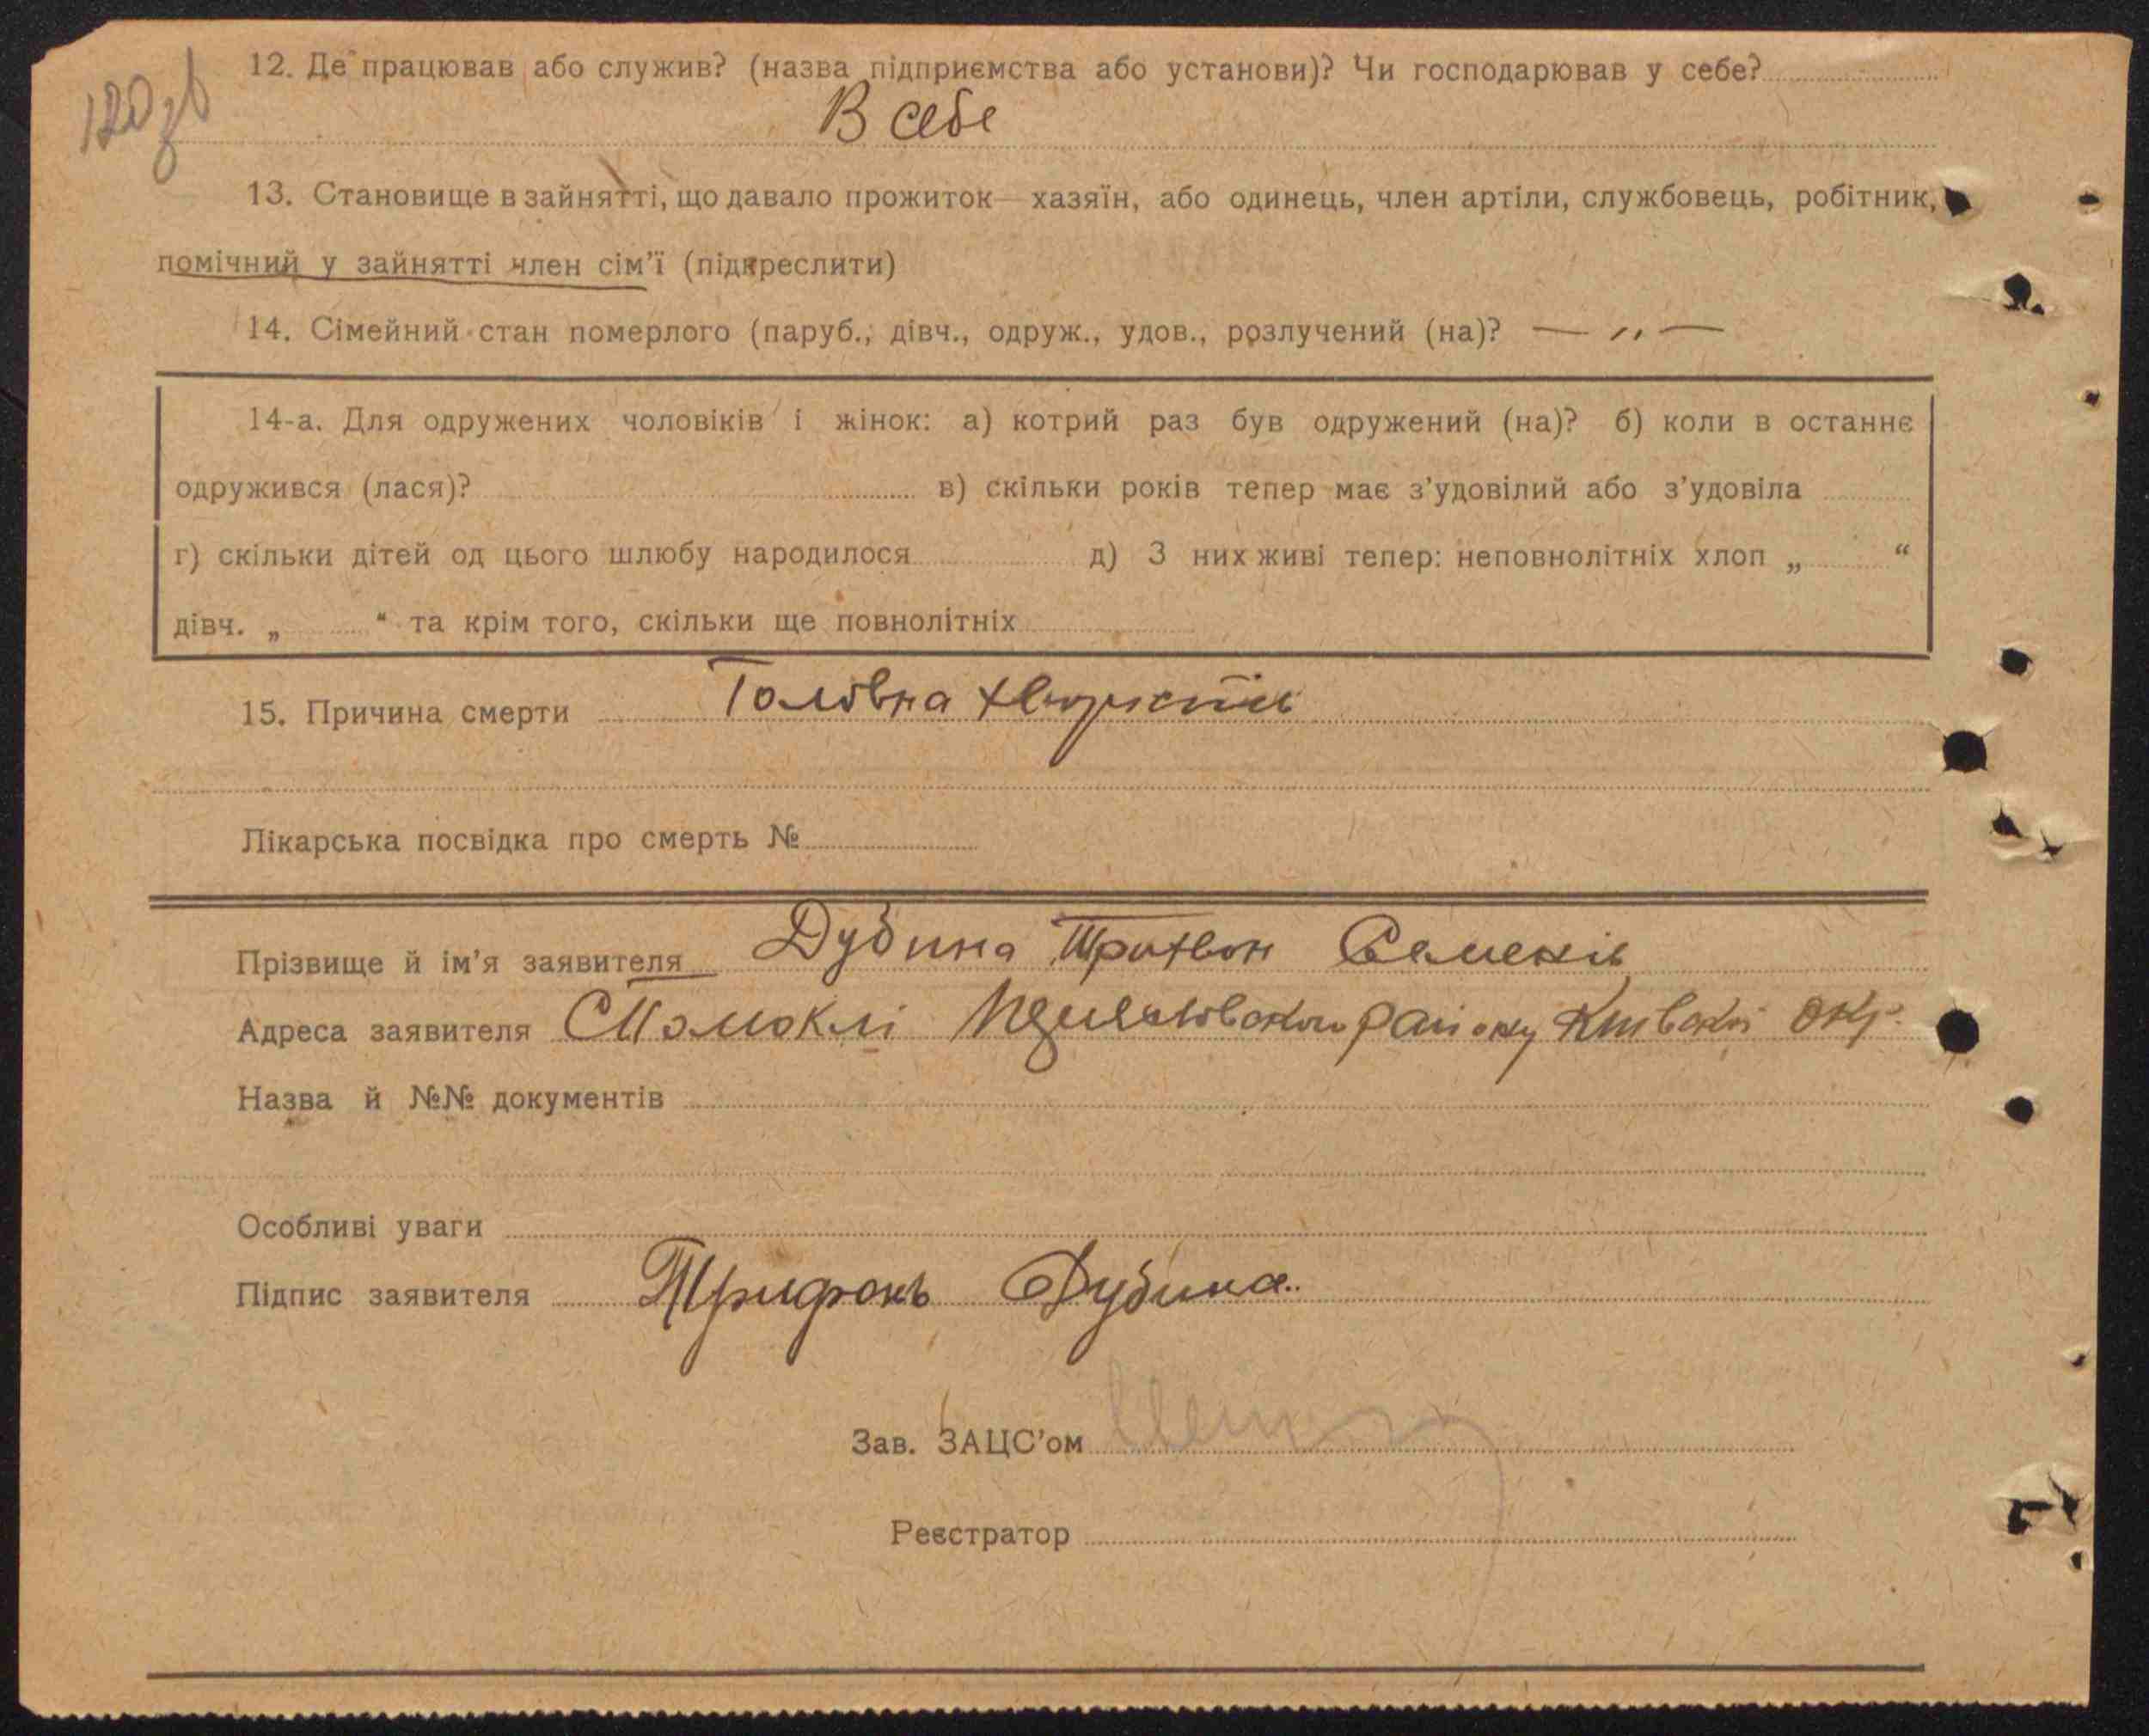 120зв
12. Де працював або служив? (назва підприємства або установи)? Чи господарював у себе?
В себе
13. Становище в зайнятті, що давало прожиток — хазяїн, або одинець, член артіли, службовець, робітник,
помічний у зайнятті член сім'ї (підкреслити)
14. Сімейний стан померлого (паруб., дівч., одруж., удов., розлучений (на)? — „ —
14-а. Для одружених чоловіків і жінок: а) котрий раз був одружений (на)? б) коли в останнє
одружився (лася)? в) скільки років тепер має з'удовілий або з'удовіла
г) скільки дітей од цього шлюбу народилося д) З них живі тепер: неповнолітніх хлоп „ “
дівч. „ “ та крім того, скільки ще повнолітніх
15. Причина смерти Головна
Лікарська посвідка про смерть №
Прізвище й ім'я заявителя Дубина Трихвон Семенів
Адреса заявителя району Київскої окр.
Назва й №№ документів
Особливі уваги
Підпис заявителя Трифонъ Дубина.
Зав. ЗАЦС'ом
Реєстратор